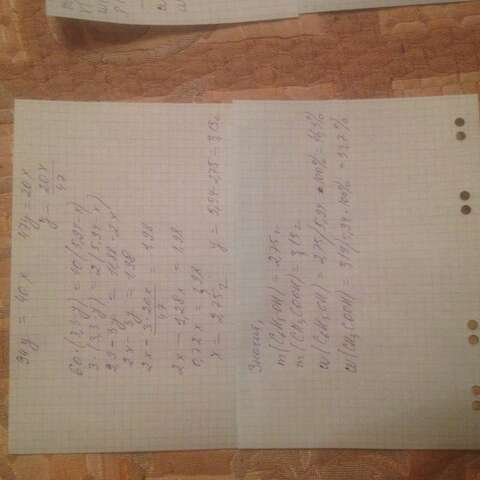 94y = 40x 47y = 20x
y = 20x/47
60·(3,3-y) = 40(5,94-x)
3·(3,3-y) = 2(5,94-x)
9,9-3y = 11,88-2x
2x-3y = 1,98
2x - 3·20x/47 = 1,98
2x - 1,28x = 1,98
0,72x = 1,98
x = 2,75г y = 5,94-2,75 = 3,19г
Значит,
m(C6H5OH) = 2,75г
m(CH3COOH) = 3,19г
w(C6H5OH) = 2,75/5,94 · 100% = 46,3%
w(CH3COOH) = 3,19/5,94·100% = 53,7%